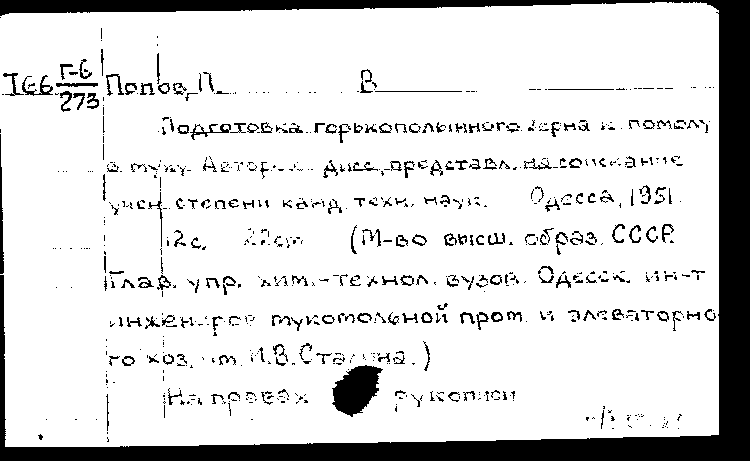 Т66 Г-6/273 Попов, П. В
Подготовка горькополынного зерна к помолу
в муку. Автореф. дисс., представл. на соискание
учен. степени канд. техн. наук. Одесса, 1951.
12с. 22cm (М-во высш. образ. СССР.
Глав. упр. хим.-технол. вузов. Одесск. ин-т
инженеров мукомольной пром. и элеваторно-
го хоз. им. И.В.Сталина.)
На правах рукописи